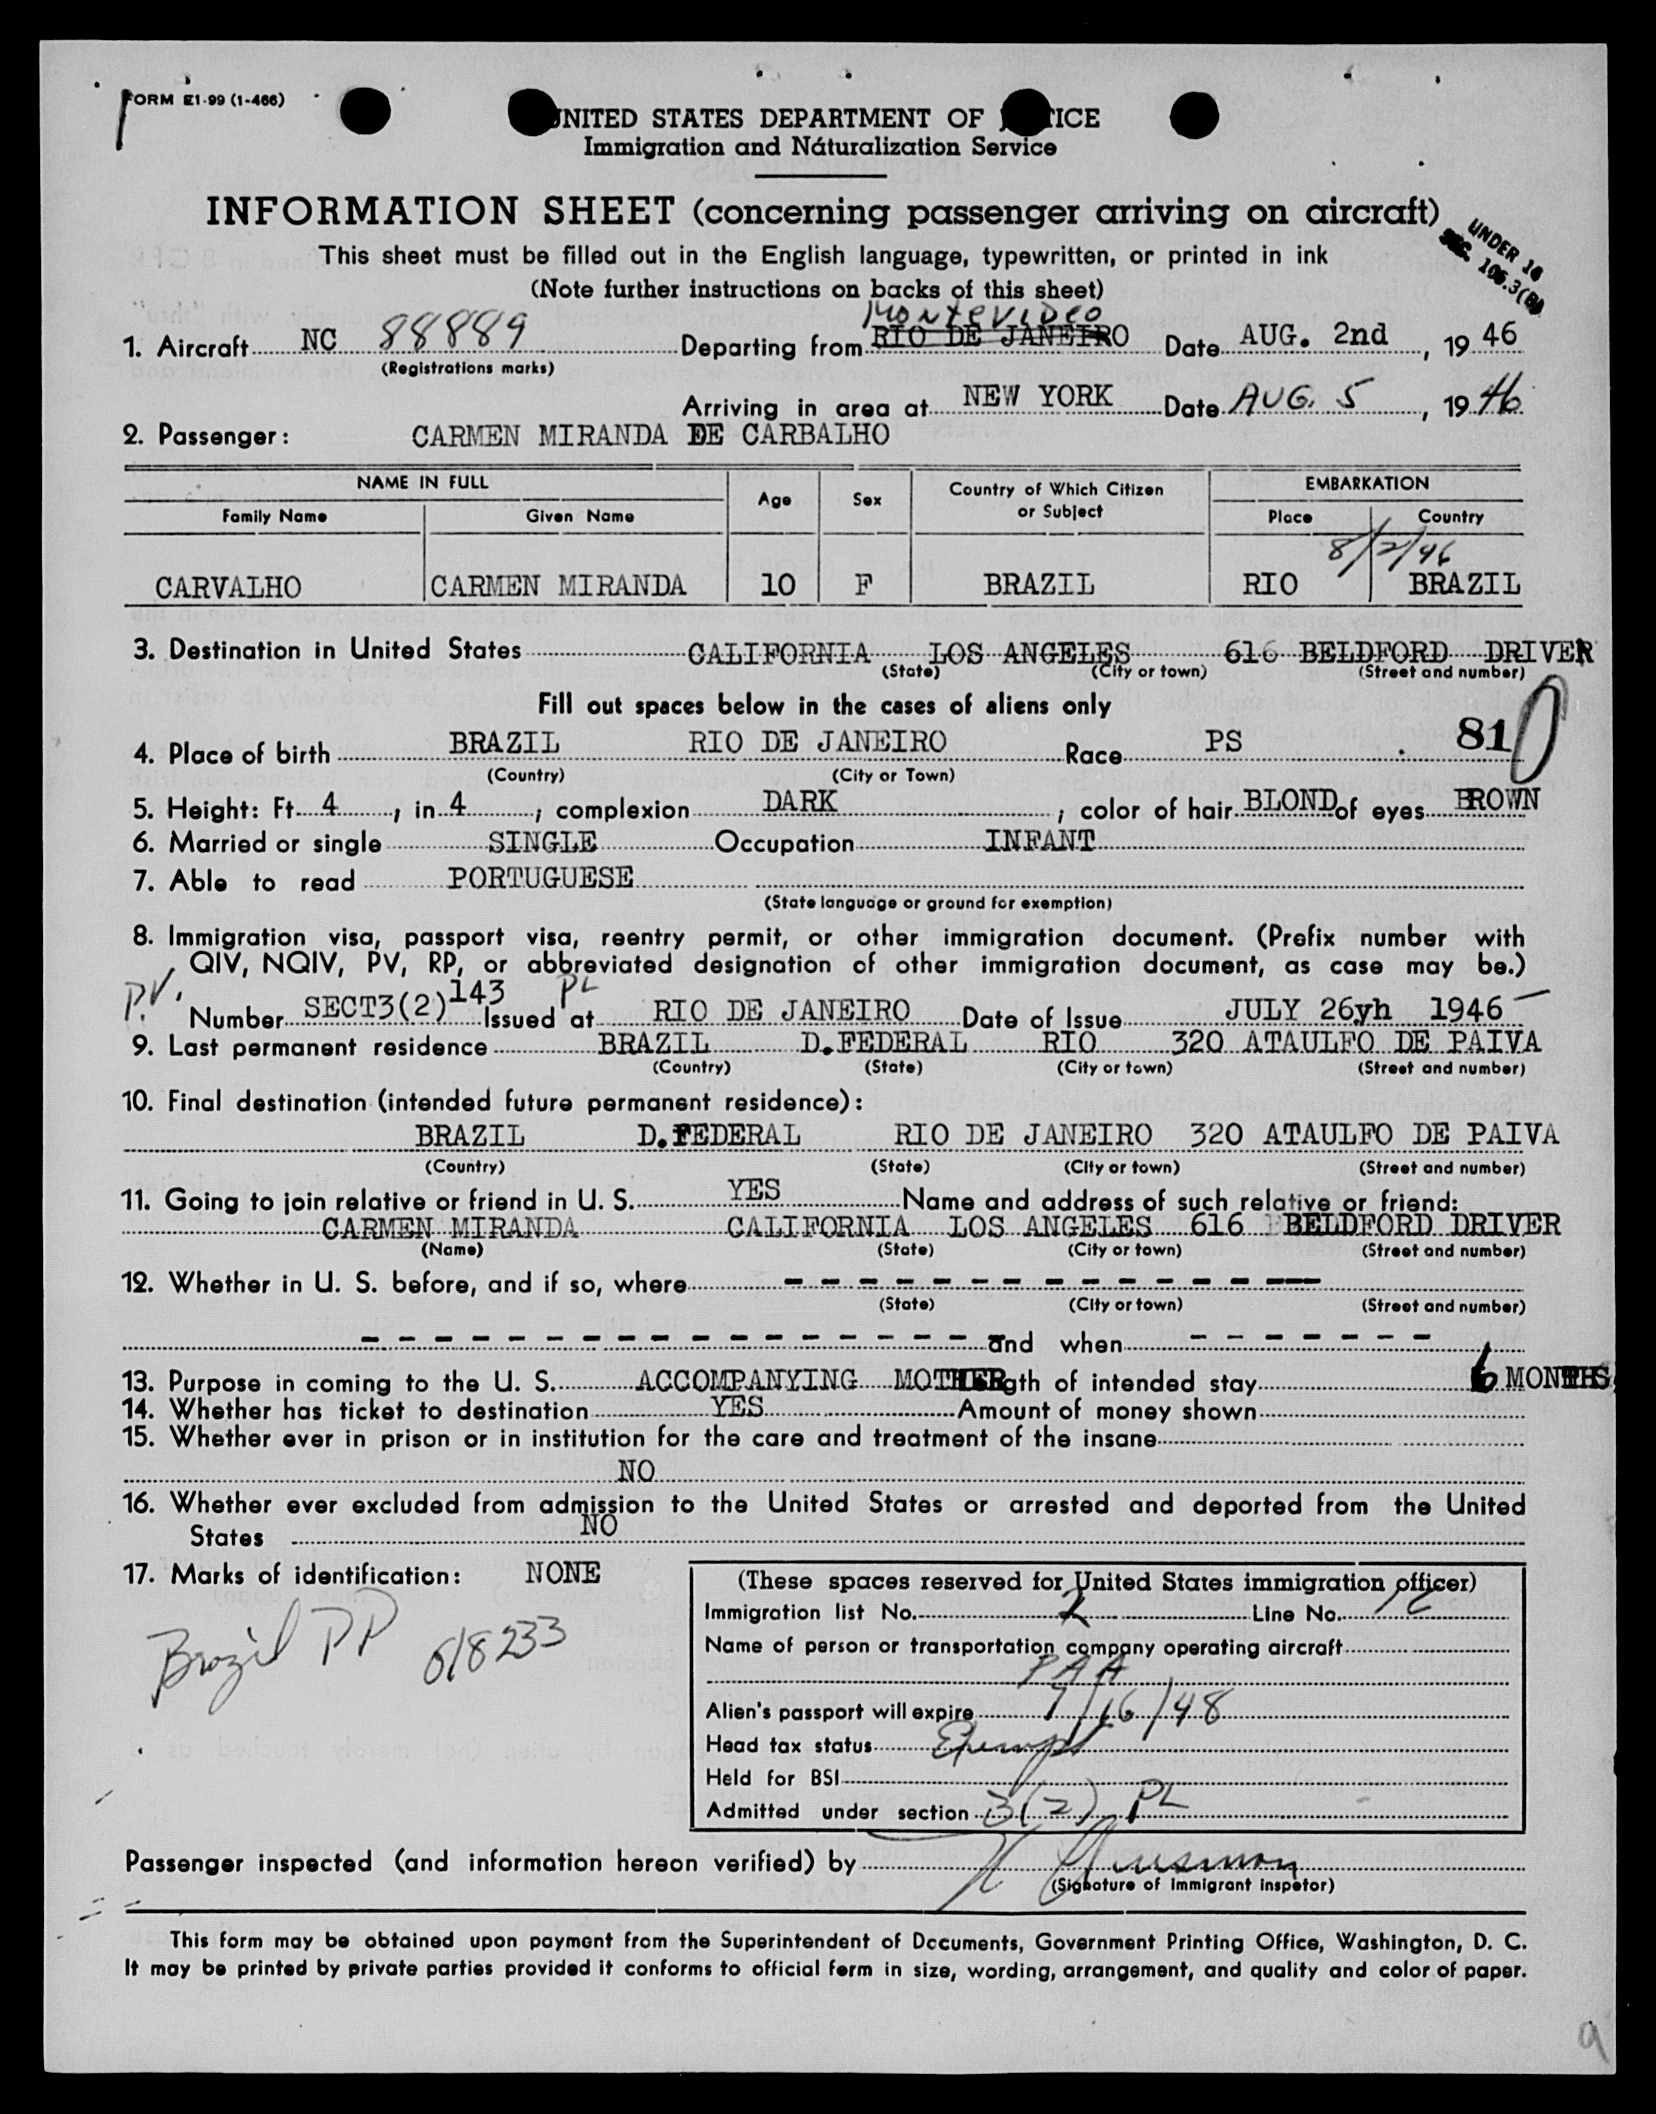 FORM E1-99 (1-466)
UNITED STATES DEPARTMENT OF JUSTICE
Immigration and Naturalization Service
INFORMATION SHEET (concerning passenger arriving on aircraft)
UNDER 16
SEC. 106.3(B)
This sheet must be filled out in the English language, typewritten, or printed in ink
(Note further instructions on backs of this sheet)
MONTEVIDEO
1. Aircraft NC 88889 Departing from RIO DE JANEIRO Date AUG. 2nd, 19 46
(Registrations marks)
Arriving in area at NEW YORK Date AUG. 5, 19 46
2. Passenger: CARMEN MIRANDA DE CARBALHO
NAME IN FULL Age Sex Country of Which Citizen or Subject EMBARKATION
Family Name Given Name Place Country
8/2/46
CARVALHO CARMEN MIRANDA 10 F BRAZIL RIO BRAZIL
3. Destination in United States CALIFORNIA LOS ANGELES 616 BELDFORD DRIVER
(State) (City or town) (Street and number)
Fill out spaces below in the cases of aliens only
810
4. Place of birth BRAZIL RIO DE JANEIRO Race PS
(Country) (City or Town)
5. Height: Ft. 4, in. 4; complexion DARK; color of hair BLOND of eyes BROWN
6. Married or single SINGLE Occupation INFANT
7. Able to read PORTUGUESE
(State language or ground for exemption)
8. Immigration visa, passport visa, reentry permit, or other immigration document. (Prefix number with
QIV, NQIV, PV, RP, or abbreviated designation of other immigration document, as case may be.)
P.V. Number SECT3(2) 143 PL Issued at RIO DE JANEIRO Date of Issue JULY 26yh 1946
9. Last permanent residence BRAZIL D.FEDERAL RIO 320 ATAULFO DE PAIVA
(Country) (State) (City or town) (Street and number)
10. Final destination (intended future permanent residence):
BRAZIL D.FEDERAL RIO DE JANEIRO 320 ATAULFO DE PAIVA
(Country) (State) (City or town) (Street and number)
11. Going to join relative or friend in U. S. YES Name and address of such relative or friend:
CARMEN MIRANDA CALIFORNIA LOS ANGELES 616 BELDFORD DRIVER
(Name) (State) (City or town) (Street and number)
12. Whether in U. S. before, and if so, where - - - - - - - - - - - - - - -
(State) (City or town) (Street and number)
- - - - - - - - - - - - - - - - - and when - - - - - - -
13. Purpose in coming to the U. S. ACCOMPANYING MOTHER Length of intended stay 6 MONTHS
14. Whether has ticket to destination YES Amount of money shown
15. Whether ever in prison or in institution for the care and treatment of the insane
NO
16. Whether ever excluded from admission to the United States or arrested and deported from the United
States NO
17. Marks of identification: NONE
Brazil PP 618233
(These spaces reserved for United States immigration officer)
Immigration list No. 2 Line No.
Name of person or transportation company operating aircraft
PAA
Alien's passport will expire 7/16/48
Head tax status Exempt
Held for BSI
Admitted under section 3(2) PL
Passenger inspected (and information hereon verified) by
(Signature of immigrant inspetor)
This form may be obtained upon payment from the Superintendent of Documents, Government Printing Office, Washington, D. C.
It may be printed by private parties provided it conforms to official form in size, wording, arrangement, and quality and color of paper.
9